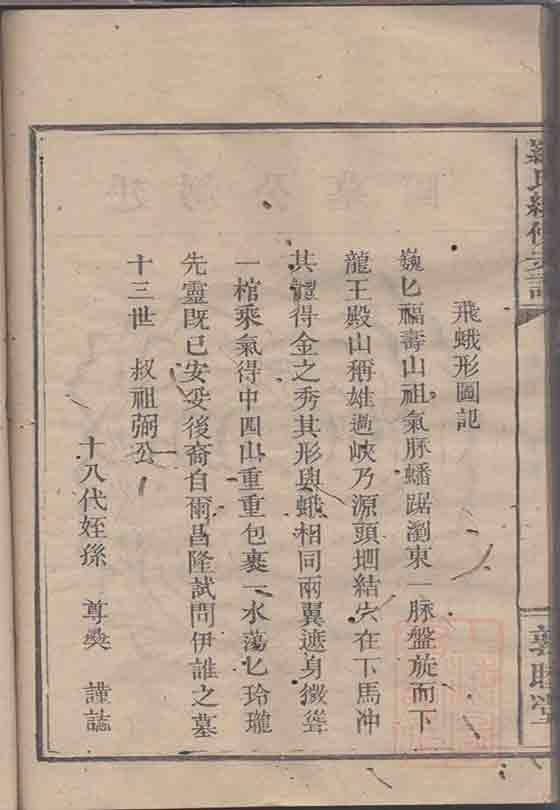 羅氏續修支譜
敦睦堂
飛蛾形圖記
巍匕福壽山祖氣脉蟠踞瀏東一脉盤旋而下
龍王殿山稱雄過峽乃源頭𡋾結穴在下馬冲
其體得金之秀其形與蛾相同兩翼遮身微聳
一棺乘氣得中四山重重包裹一水蕩匕玲瓏
先靈既已安妥後裔自爾昌隆試問伊誰之墓
十三世 叔祖弼公
十八代姪孫 尊奬 謹誌